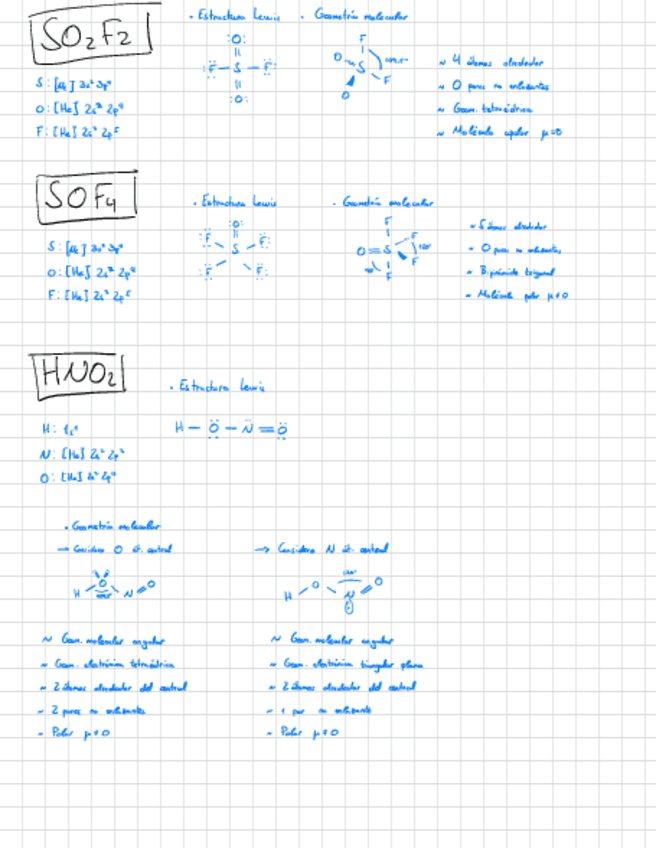 SO₂F₂
• Estructura Lewis • Geometría molecular
S: [Ne] 3s² 3p⁴
O: [He] 2s² 2p⁴
F: [He] 2s² 2p⁵
:O:
F - S - F
:O:
F
O S F
O
~ 4 átomos alrededor
~ 0 pares no enlazantes
~ Geom. tetraédrica
~ Molécula apolar μ=0
SOF₄
• Estructura Lewis • Geometría molecular
S: [Ne] 3s² 3p⁴
O: [He] 2s² 2p⁴
F: [He] 2s² 2p⁵
:O:
F S F
F F
F
O=S F
F
F
~ 5 átomos alrededor
~ 0 pares no enlazantes
~ Bipirámide trigonal
~ Molécula polar μ≠0
HNO₂
• Estructura Lewis
H: 1s¹
N: [He] 2s² 2p³
O: [He] 2s² 2p⁴
H - O - N = O
• Geometría molecular
→ Considero O át. central → Considero N át. central
H O N O
H O N O
~ Geom. molecular angular
~ Geom. electrónica tetraédrica
~ 2 átomos alrededor del central
~ 2 pares no enlazantes
~ Polar μ≠0
~ Geom. molecular angular
~ Geom. electrónica triangular plana
~ 2 átomos alrededor del central
~ 1 par no enlazante
~ Polar μ≠0